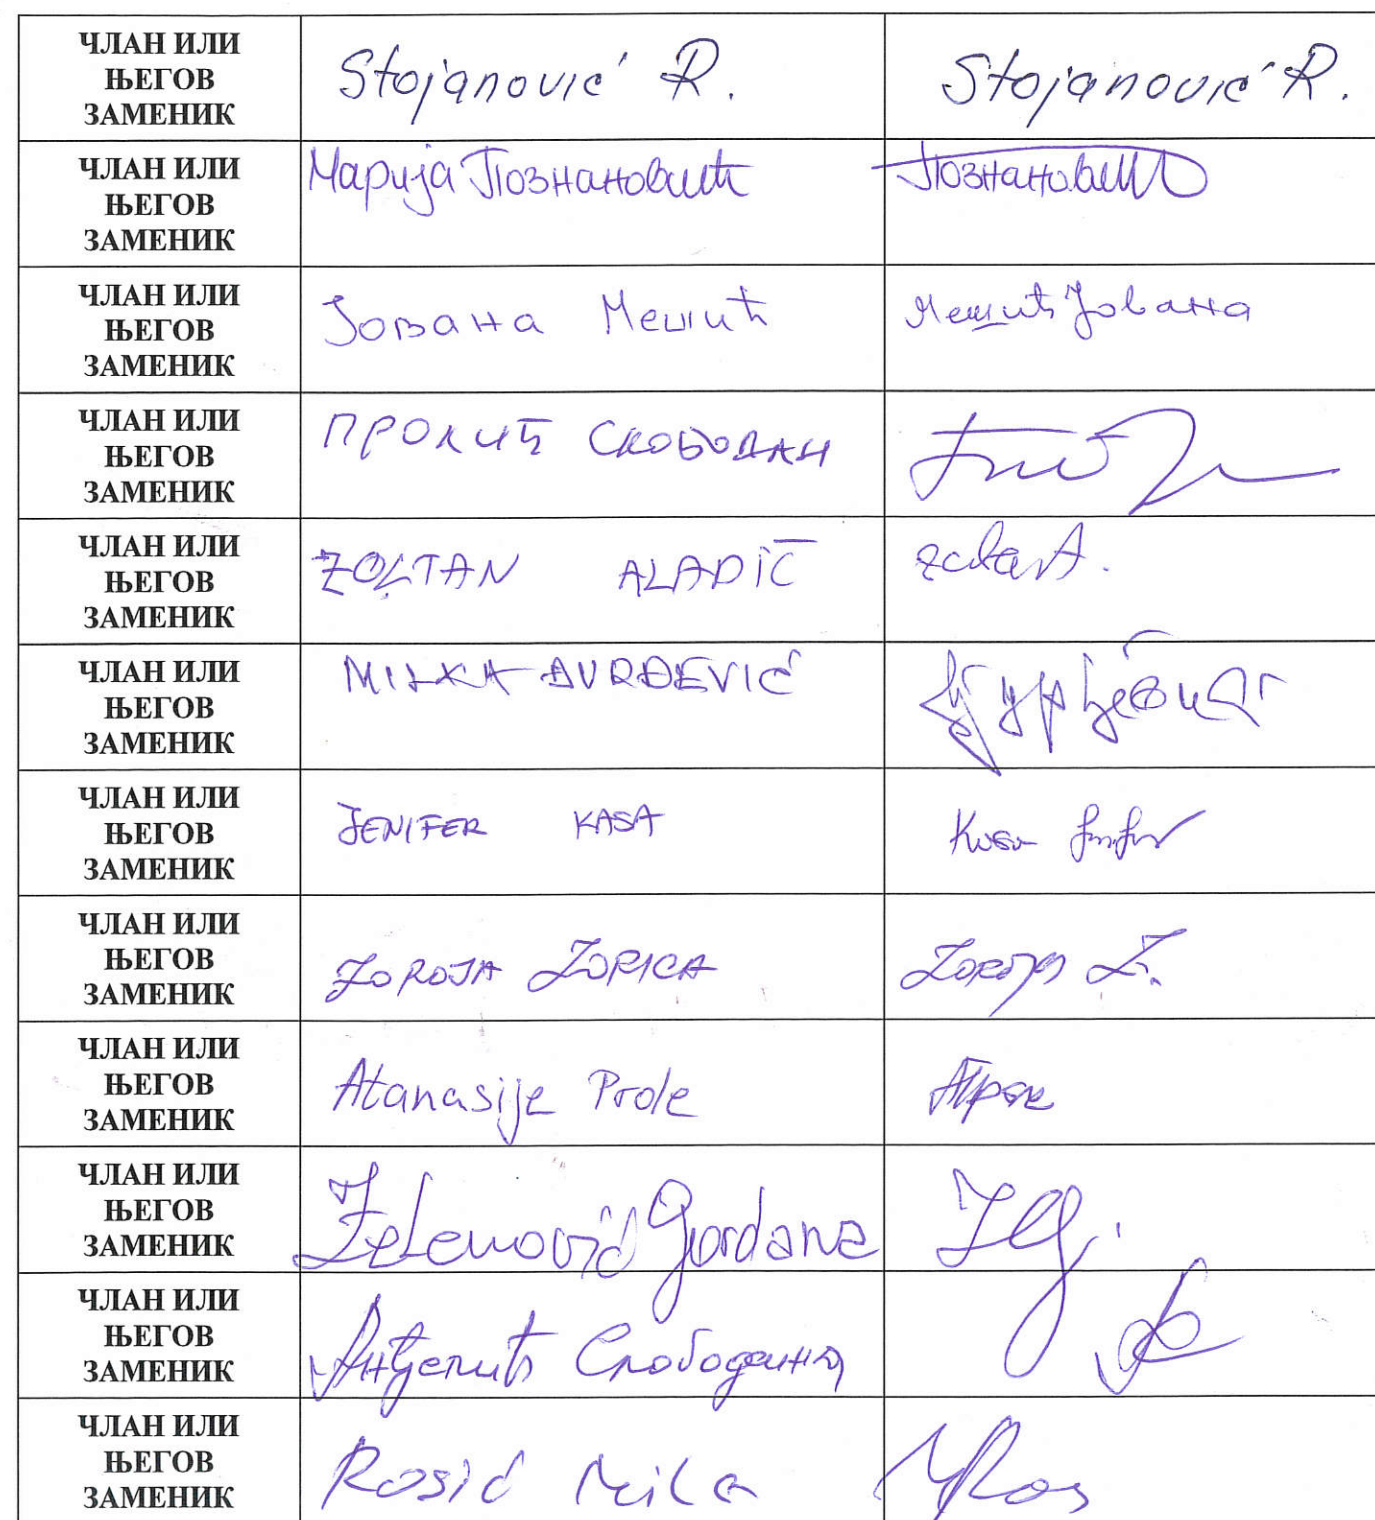 ЧЛАН ИЛИ
ЊЕГОВ
ЗАМЕНИК
Stojanović R.
Stojanović R.
ЧЛАН ИЛИ
ЊЕГОВ
ЗАМЕНИК
Марија Познановић
Познановић
ЧЛАН ИЛИ
ЊЕГОВ
ЗАМЕНИК
Јована Мешић
Мешић Јована
ЧЛАН ИЛИ
ЊЕГОВ
ЗАМЕНИК
ПРОЛИЋ СЛОБОДАН
ЧЛАН ИЛИ
ЊЕГОВ
ЗАМЕНИК
ZOLTAN ALADIĆ
ЧЛАН ИЛИ
ЊЕГОВ
ЗАМЕНИК
MILKA ĐURĐEVIĆ
Ђурђевић
ЧЛАН ИЛИ
ЊЕГОВ
ЗАМЕНИК
JENIFER KASA
Kasa Jenifer
ЧЛАН ИЛИ
ЊЕГОВ
ЗАМЕНИК
ZOROJA ZORICA
Zoroja Z.
ЧЛАН ИЛИ
ЊЕГОВ
ЗАМЕНИК
Atanasije Prole
ЧЛАН ИЛИ
ЊЕГОВ
ЗАМЕНИК
Zelenović Gordana
ЧЛАН ИЛИ
ЊЕГОВ
ЗАМЕНИК
Анђелић Слободанка
ЧЛАН ИЛИ
ЊЕГОВ
ЗАМЕНИК
Rosić Mila